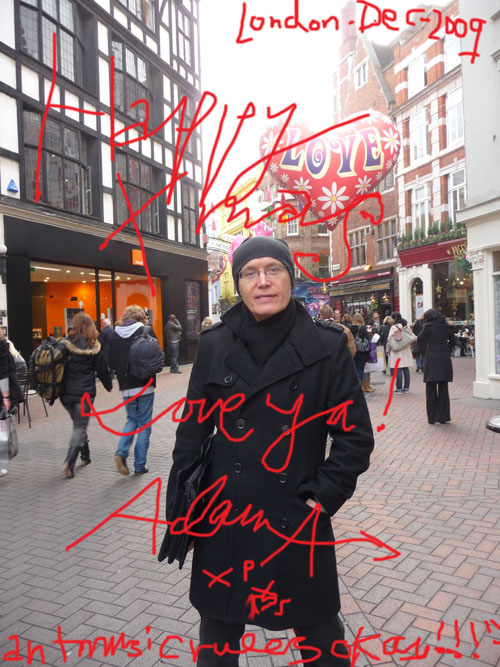 London. Dec-2009
Happy
Xmas
LOVE
Love ya!
Adam A
X P
antmusic rules okay!!!!